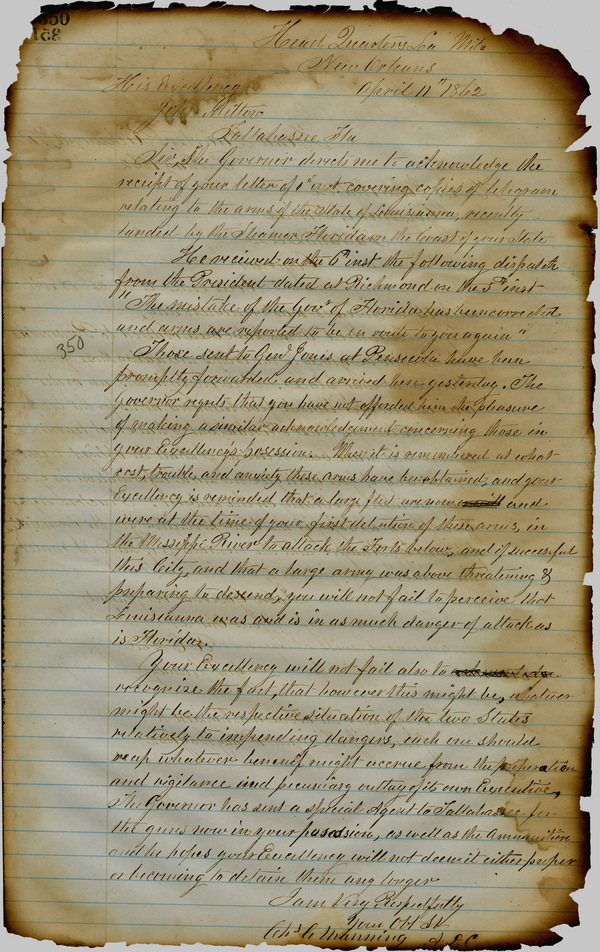 350
Head Quarters La Mila
New Orleans
His Excellency April 11th 1862
John Milton
Tallahassee Fla
Sir, The Governor directs me to acknowledge the
receipt of your letter of 1st inst. covering copies of telegram
relating to the arms of the State of Louisianna, recently
landed by the Steamer Florida on the Coast of your State
He received on the 6th inst the following dispatch
from the President dated at Richmond on the 5th inst
"The mistake of the Govr of Florida has been corrected
and arms are reported to be en route to you again"
350
Those sent to Genl Jones at Pensecola have been
promptly forwarded and arrived here yesterday. The
Governor regrets that you have not afforded him the pleasure
of making a similar acknowledgement concerning those in
your Excellency's posession. When it is remembered at what
cost, trouble, and anxiety these arms have been obtained, and your
Excellency is reminded that a large fleet are now and
were at the time of your first detention of these arms, in
the Missippi River to attack the Forts below, and if successful
this City, and that a large army was above threatening &
preparing to descend, you will not fail to perceive that
Louisianna was and is in as much danger of attack as
is Florida.
Your Excellency will not fail also to
recognize the fact, that however this might be, whatever
might be the respective situation of the two States
relatively to impending dangers, each one should
reap whatever benefit might accrue from the preperation
and vigilance and pecuniary outlay of its own Executive,
The Governor has sent a special Agent to Tallahassee for
the guns now in your posession, as well as the Amunition
and he hopes your Excellency will not deem it either proper
or becoming to detain them any longer
I am Very Respectfully
Your Obt St
Manning A.D.C.